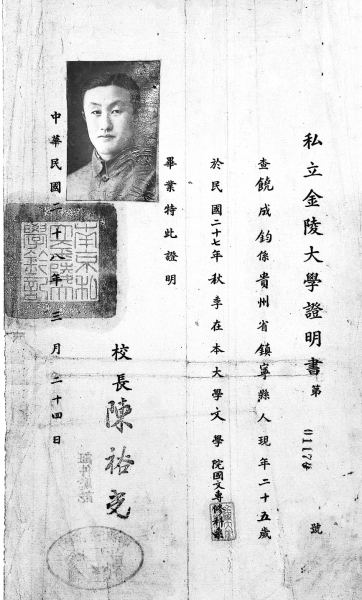 私立金陵大學證明書第01178號
查饒成鈞係貴州省鎮寧縣人現年二十五歲
於民國二十七年秋季在本大學文學院國文專修科
畢業特此證明
校長陳裕光
中華民國二十八年三月二十四日